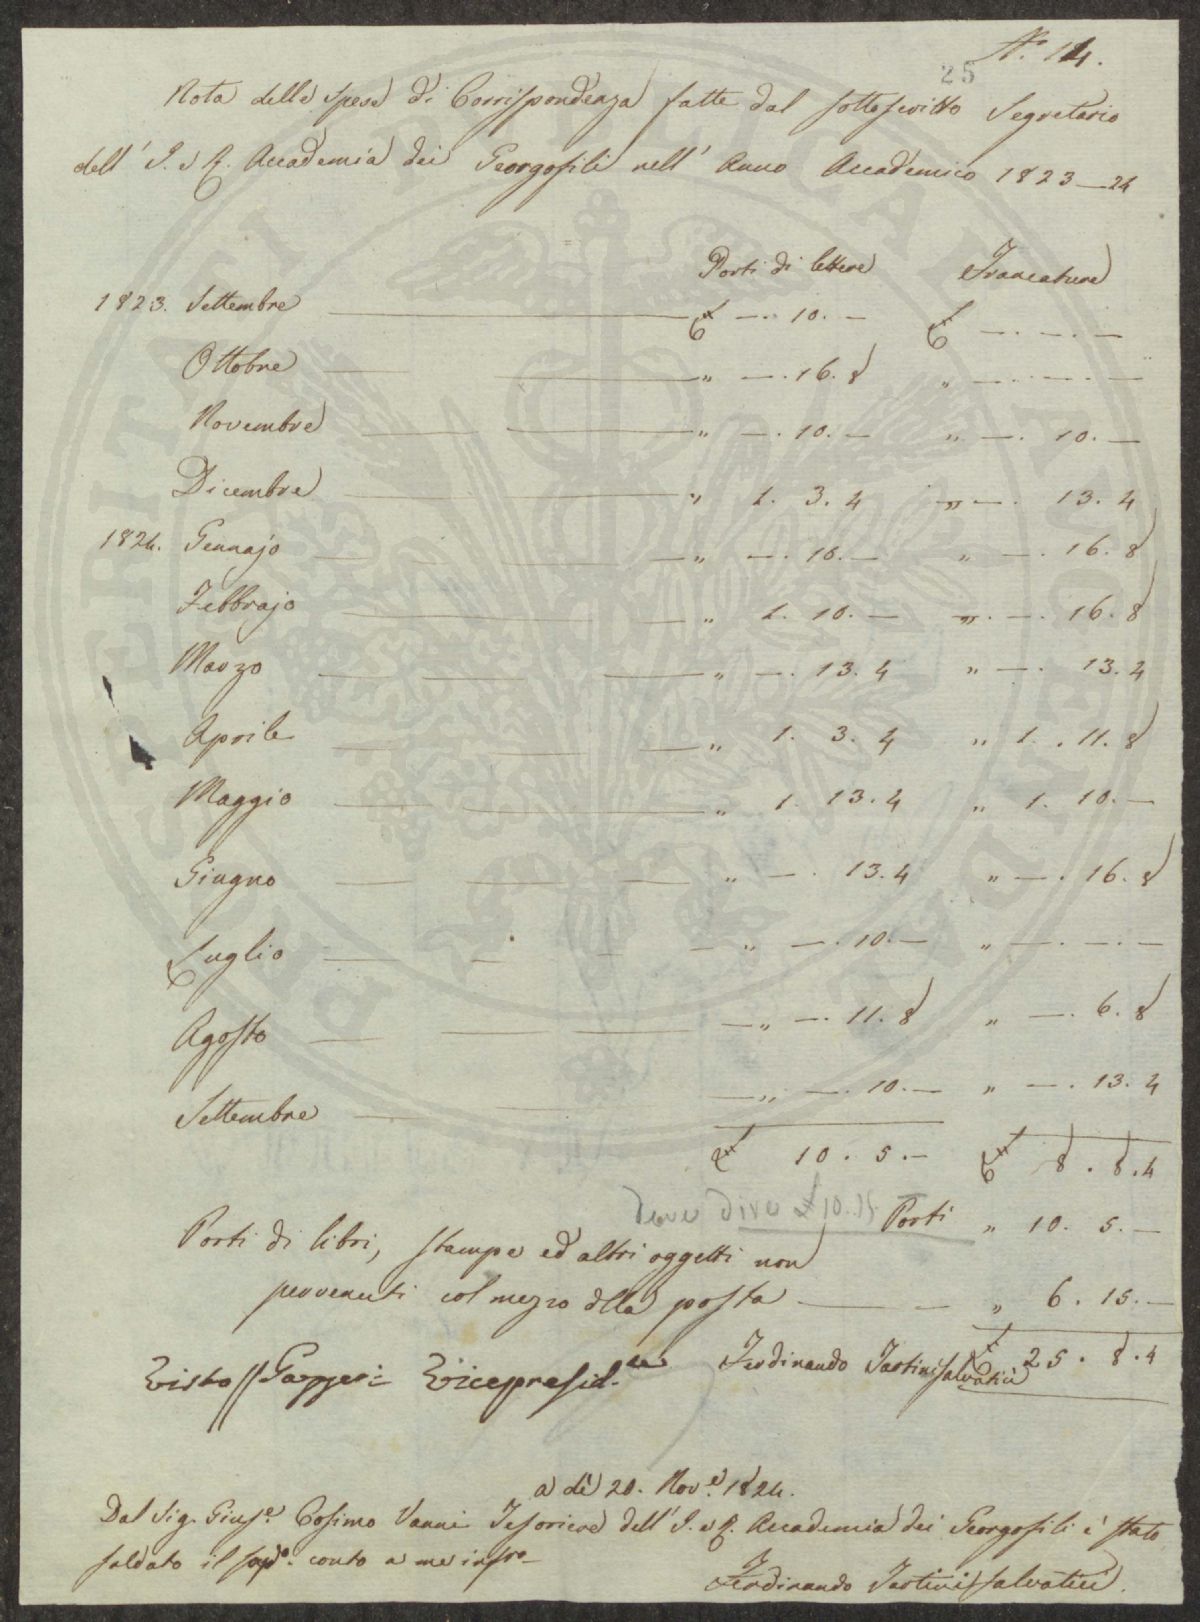 N.º 14.
25
Nota delle spese di Corrispondenza fatte dal sottoscritto Segretario
dell' I. e R. Accademia dei Georgofili nell' Anno Accademico 1823—24
Porti di lettere Francature
1823. Settembre £ —. 10. — £ —. —. —
Ottobre " —. 16. 8 " —. —. —
Novembre " —. 10. — " —. 10. —
Dicembre " 1. 3. 4 " —. 13. 4
1824. Gennajo " —. 10. — " —. 16. 8
Febbrajo " 1. 10. — " —. 16. 8
Marzo " —. 13. 4 " —. 13. 4
Aprile " 1. 3. 4 " 1. 11. 8
Maggio " 1. 13. 4 " 1. 10. —
Giugno " —. 13. 4 " —. 16. 8
Luglio " —. 10. — " —. —. —
Agosto " —. 11. 8 " —. 6. 8
Settembre " —. 10. — " —. 13. 4
£ 10. 5. — £ 8. 8. 4
deve dire £ 10. 15. Porti " 10. 5. —
Porti di libri, stampe ed altri oggetti non
pervenuti col mezzo della posta — " 6. 15. —
£ 25. 8. 4
Visto Gazzeri Vicepresid.te Ferdinando Tartini Salvatici
a dì 20. Nov.e 1824.
Dal Sig. Gius.e Cosimo Vanni Tesoriere dell' I. e R. Accademia dei Georgofili è stato
saldato il sop.o conto a me infro
Ferdinando Tartini Salvatici.
PROSPERITATI PUBLICAE AUGENDAE